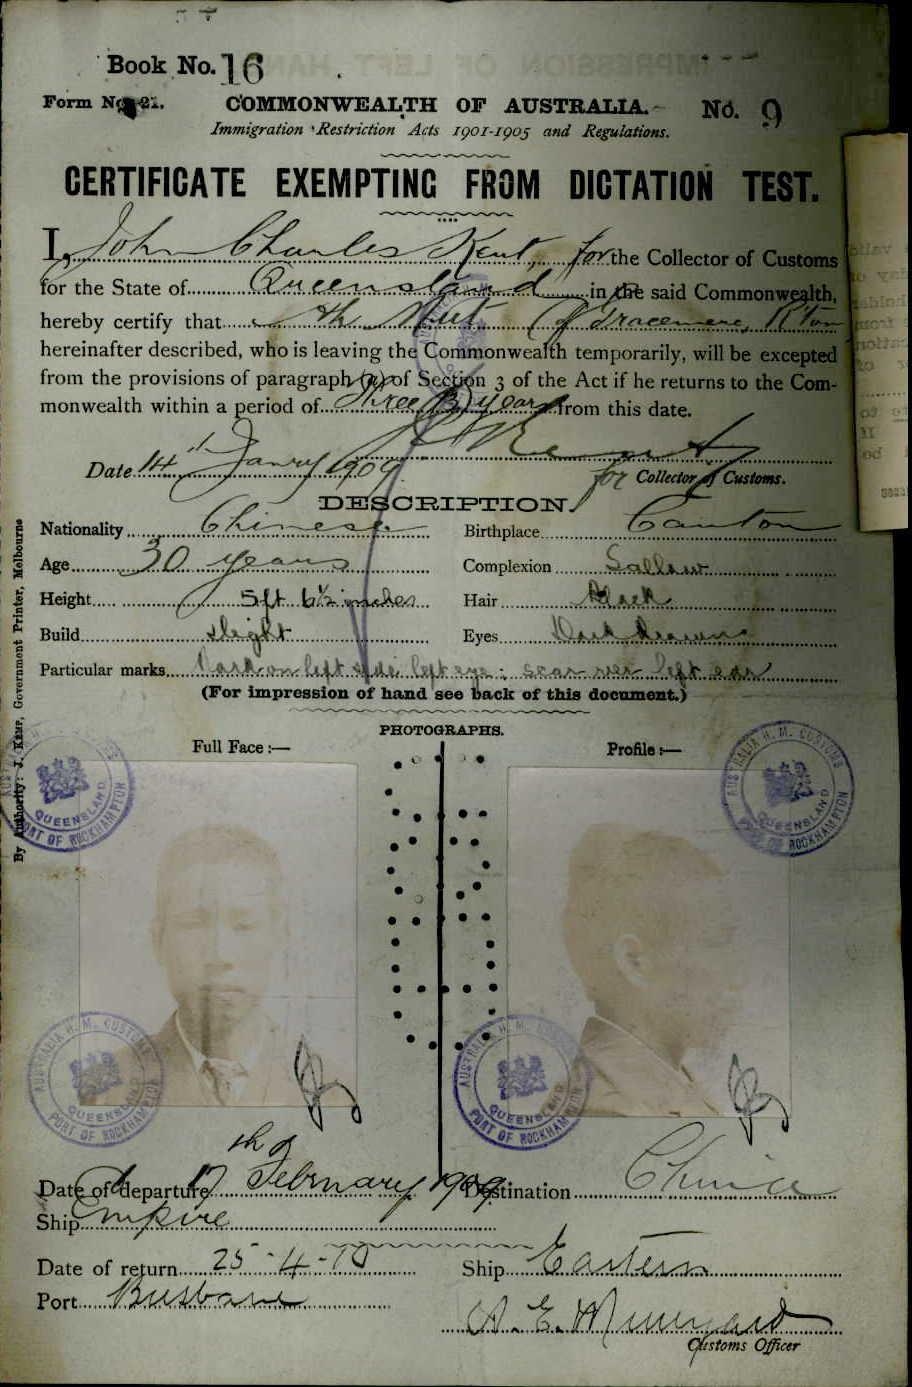 Book No. 16
Form No. 21. COMMONWEALTH OF AUSTRALIA. No. 9
Immigration Restriction Acts 1901-1905 and Regulations.
CERTIFICATE EXEMPTING FROM DICTATION TEST.
I, John Charles Kent, for the Collector of Customs
for the State of Queensland in the said Commonwealth,
hereby certify that Ah of Gracemere, R'ton
hereinafter described, who is leaving the Commonwealth temporarily, will be excepted
from the provisions of paragraph (a) of Section 3 of the Act if he returns to the Com-
monwealth within a period of three (3) years from this date.
Date 14th Janry 1909 for Collector of Customs.
DESCRIPTION.
Nationality Chinese Birthplace Canton
Age 30 years Complexion Sallow
Height 5ft 6½ inches Hair Black
Build slight Eyes Dark brown
Particular marks on left side left eye; scar near left ear
(For impression of hand see back of this document.)
PHOTOGRAPHS.
Full Face :— Profile :—
By Authority: J. KEMP, Government Printer, Melbourne
AUSTRALIA H. M. CUSTOMS
QUEENSLAND
PORT OF ROCKHAMPTON
AUSTRALIA H. M. CUSTOMS
QUEENSLAND
PORT OF ROCKHAMPTON
AUSTRALIA H. M. CUSTOMS
QUEENSLAND
PORT OF ROCKHAMPTON
AUSTRALIA H. M. CUSTOMS
QUEENSLAND
PORT OF ROCKHAMPTON
Date of departure 17th of February 1909 Destination China
Ship Empire
Date of return 25-4-10 Ship Eastern
Port Brisbane
Customs Officer